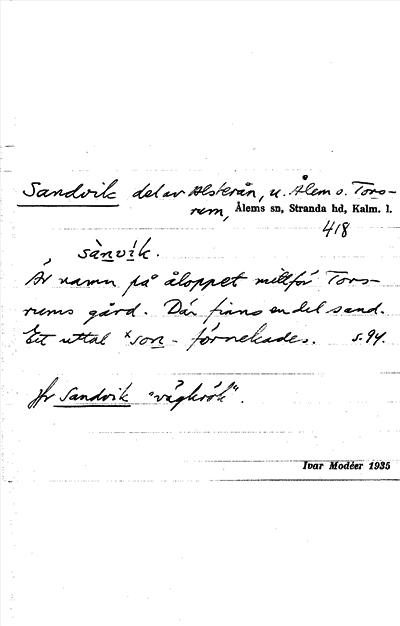 Sandvik del av Alsterån, u. Ålem o. Tors-
rum, Ålems sn, Stranda hd, Kalm. l.
418
sànvík.
Är namn på åloppet mittför Tors-
rums gård. Där finns en del sand.
Ett uttal *son- förnekades. s. 94.
Jfr Sandvik "vägkrök".
Ivar Modéer 1935